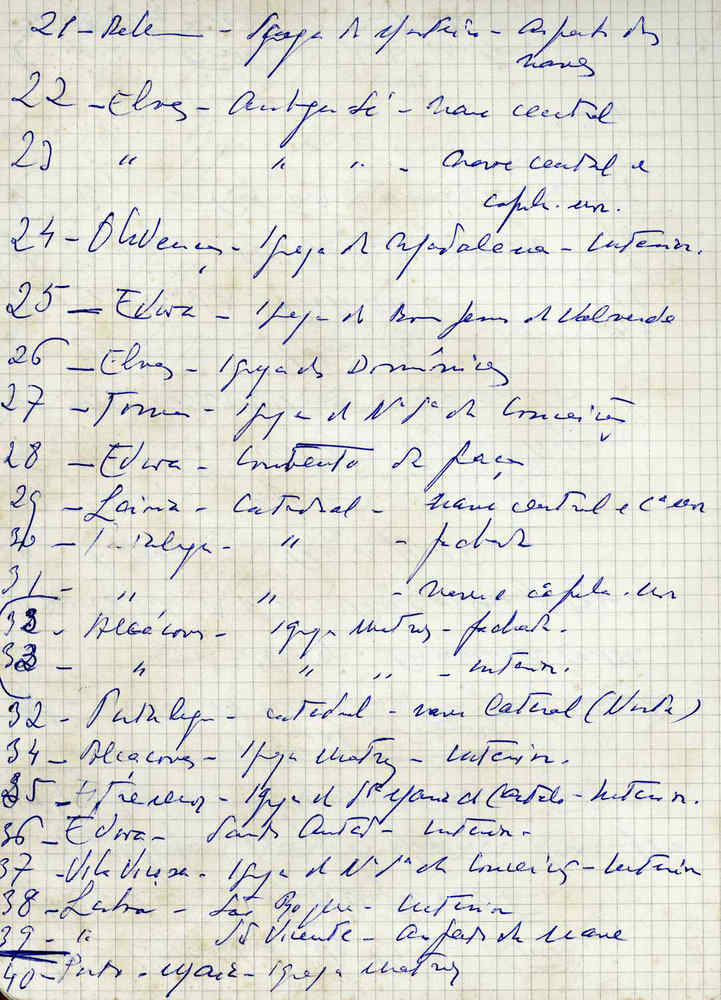 21 - Belem - Igreja do Mosteiro - Aspecto das
naves
22 - Elvas - Antiga Sé - nave central
23 " " " - nave central e
capela-mor.
24 - Olivença - Igreja da Madalena - Interior.
25 - Évora - Igreja do Bom Jesus de Valverde
26 - Elvas - Igreja das Domínicas
27 - Tomar - Igreja de Nª Sª da Conceição
28 - Évora - Convento da Graça
29 - Leiria - Catedral - nave central e Cª mor
30 - Portalegre - " - fachada
31 - " " - nave e capela-mor
33 - Alcáçovas - Igreja Matriz - fachada.
32 - " " " - interior.
32 - Portalegre - catedral - nave lateral (Norte)
34 - Alcáçovas - Igreja Matriz - Interior.
35 - Estremoz - Igreja de Stª Maria do Castelo - Interior.
36 - Évora - Santo Antão - interior -
37 - Vila Viçosa - Igreja de Nª Sª da Conceição - Interior
38 - Lisboa - São Roque - Interior
39 - " S. Vicente - Aspecto da nave
40 - Porto - Igreja Matriz